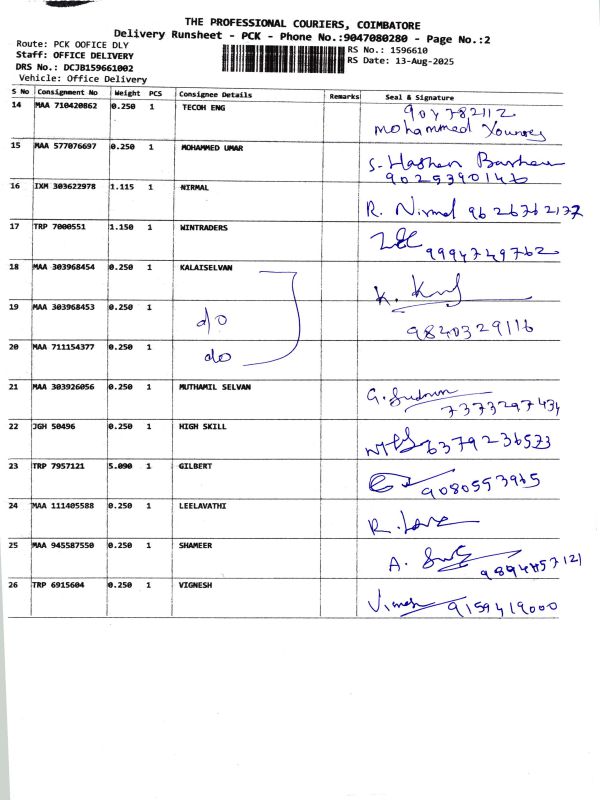 THE PROFESSIONAL COURIERS, COIMBATORE
Delivery Runsheet - PCK - Phone No.:9047080280 - Page No.:2
Route: PCK OOFICE DLY
RS No.: 1596610
Staff: OFFICE DELIVERY
RS Date: 13-Aug-2025
DRS No.: DCJB159661002
Vehicle: Office Delivery
S No Consignment No Weight PCS Consignee Details Remarks Seal & Signature
14 MAA 710420862 0.250 1 TECOH ENG
mohammed
15 MAA 577076697 0.250 1 MOHAMMED UMAR S. Hashen
9025390146
16 IXM 303622978 1.115 1 NIRMAL R. Nirmal 9626762177
17 TRP 7000551 1.150 1 WINTRADERS
9994749762
18 MAA 303968454 0.250 1 KALAISELVAN K.
19 MAA 303968453 0.250 1 do 9840329116
20 MAA 711154377 0.250 1 do
21 MAA 303926056 0.250 1 MUTHAMIL SELVAN G.
7373297434
22 JGH 50496 0.250 1 HIGH SKILL 6379236573
23 TRP 7957121 5.090 1 GILBERT 9080553965
24 MAA 111405588 0.250 1 LEELAVATHI R.
25 MAA 945587550 0.250 1 SHAMEER A.
26 TRP 6915604 0.250 1 VIGNESH 9159419000